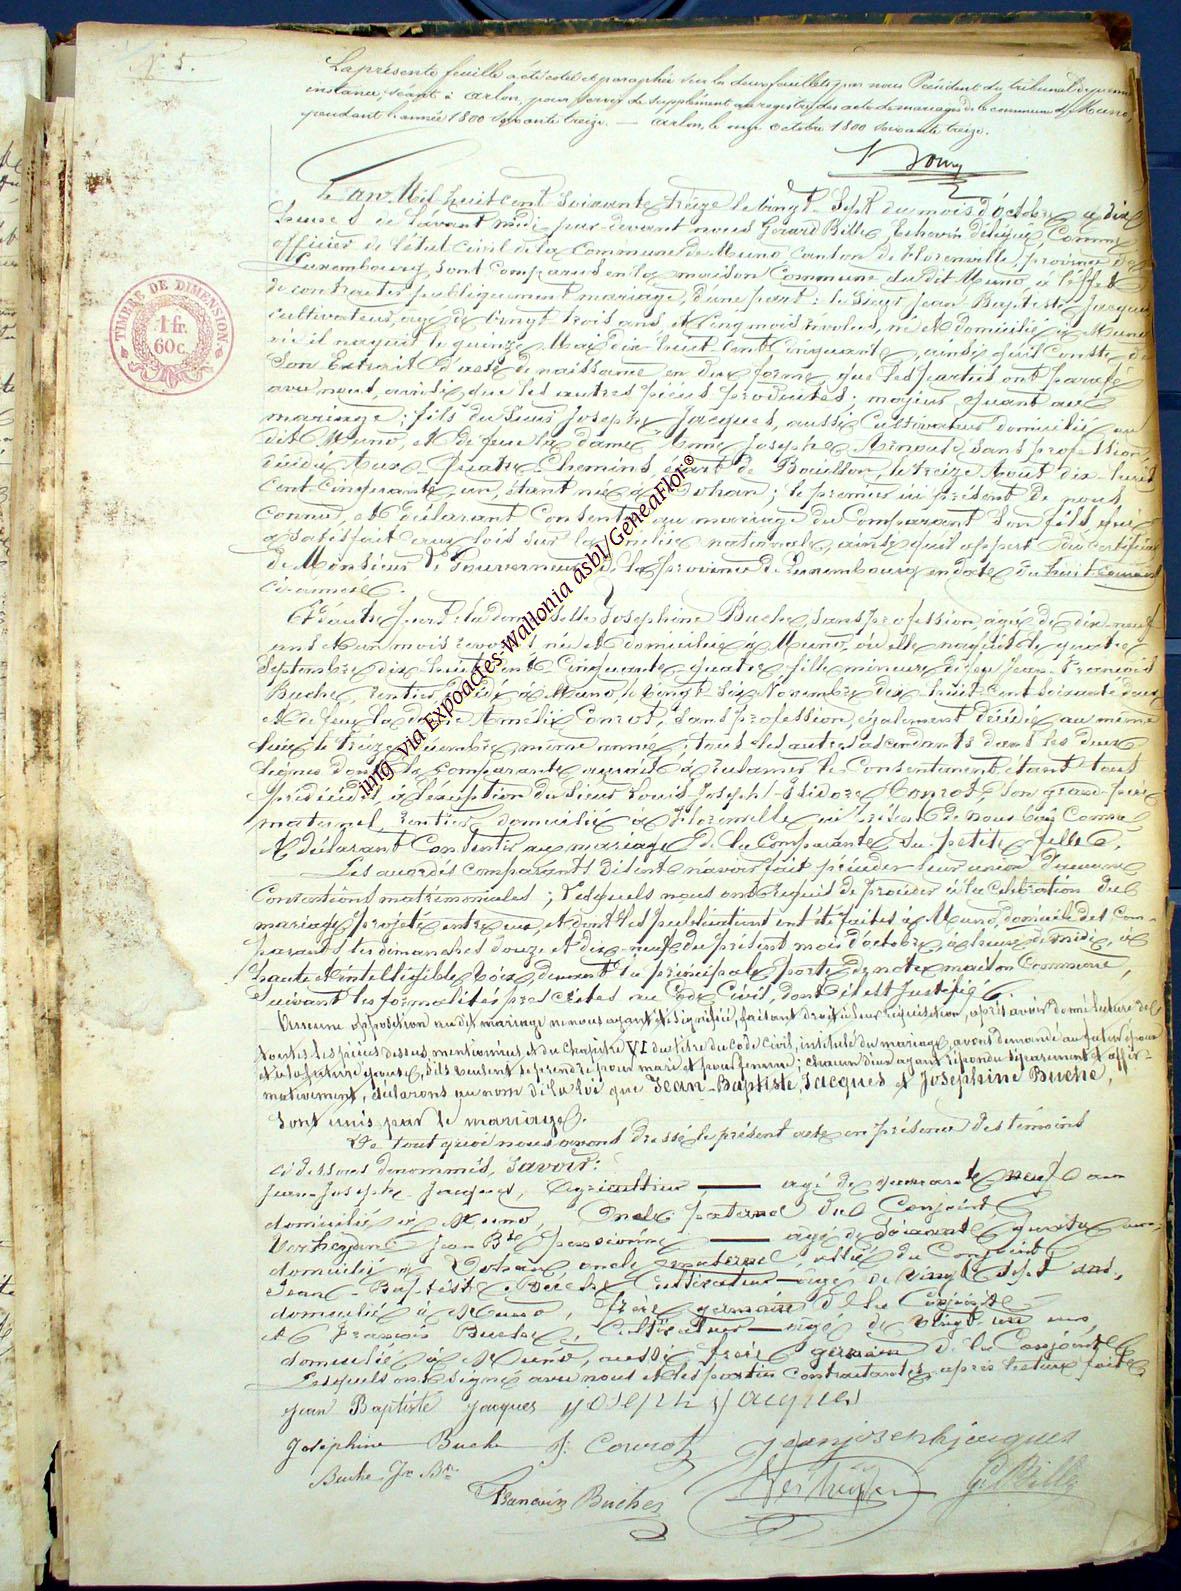 N° 5.
La présente feuille a été cotée et paraphée sur les deux feuillets par nous Président du tribunal de première
instance, séant à Arlon, pour servir de supplément au registre des actes de mariages de la commune de Muno,
pendant l'année 1800 soixante treize. — Arlon, le onze octobre 1800 soixante treize.
TIMBRE DE DIMENSION
1 fr.
60 c.
L'an Mil huit cent soixante treize le vingt-sept du mois d'octobre à dix
heures de l'avant midi par devant nous Gérard Bille, Echevin délégué, comme
officier de l'état civil de la Commune de Muno canton de Florenville, province de
Luxembourg, sont comparus en la maison Commune du dit Muno, à l'effet
de contracter publiquement mariage, d'une part: le sieur Jean Baptiste Jacques
cultivateur, âgé de vingt-trois ans, et cinq mois révolus, né et domicilié à Muno
où il naquit le quinze Mai dix-huit cent cinquante, ainsi qu'il conste de
son Extrait d'acte de naissance en due forme, que les parties ont parafé
avec nous, ainsi que les autres pièces produites; majeur quant au
mariage; fils du sieur Joseph Jacques, aussi cultivateur domicilié au
dit Muno, et de feue la dame Anne Josephe Arnould sans profession,
décédée Aux Quatre-Chemins, écart de Bouillon, le treize Août dix-huit
cent cinquante un, étant née à Dohan; le premier ici présent de nous
connu, et déclarant consentir au mariage du Comparant son fils, qui
a satisfait aux lois sur la milice nationale, ainsi qu'il appert du certificat
de Monsieur le Gouverneur de la province de Luxembourg en date du huit courant
ci-annexé.
Et d'autre part: la demoiselle Josephine Buche, sans profession, âgée de dix-neuf
ans et un mois révolus, née et domiciliée à Muno, où elle naquit le quatre
Septembre dix-huit cent cinquante quatre, fille mineure de feu Jean-François
Buche, rentier, décédé à Muno, le vingt-six Novembre dix-huit-cent soixante deux
et de feue la dame Amélie Conrot, sans profession, également décédée au même
lieu le treize Décembre même année; tous les autres ascendants dans les deux
lignes dont la comparante aurait à réclamer le consentement étant tous
prédécédés, à l'exception du sieur Louis-Joseph-Isidore Conrot, son grand-père
maternel, rentier, domicilié à Florenville, ici présent de nous bien connu
et déclarant consentir au mariage de la Comparante sa petite-fille.
Les accordés comparants disent n'avoir fait précéder leur union d'aucunes
Conventions matrimoniales; Lesquels nous ont requis de procéder à la célébration du
mariage projeté entre eux, et dont les publications ont été faites à Muno, domicile des com-
parants les dimanches douze et dix-neuf du présent mois d'octobre, à l'heure de midi, à
haute et intelligible voix, devant la principale porte de notre maison Commune,
suivant les formalités prescrites au Code Civil, dont il est justifié.
Aucune opposition audit mariage ne nous ayant été signifiée, faisant droit à leur réquisition, après avoir donné lecture de
toutes les pièces dessus mentionnées et du chapitre VI du titre du Code civil, intitulé du mariage, avons demandé au futur époux
et à la future épouse, s'ils veulent se prendre pour mari et pour femme; chacun d'eux ayant répondu séparément et affir-
mativement, déclarons au nom de la loi que Jean-Baptiste Jacques et Josephine Buche,
sont unis par le mariage.
De tout quoi nous avons dressé le présent acte en présence des témoins
ci dessous dénommés, savoir:
Jean-Joseph Jacques, Agriculteur, — âgé de quarante neuf ans
domicilié à Muno, Oncle paternel du Conjoint;
Verheyden Jean Bte, pensionné — âgé de soixante quatre ans,
domicilié à Dohan, oncle maternel, allié du Conjoint;
Jean-Baptiste Buche, Cultivateur — âgé de vingt sept ans,
domicilié à Muno, frère germain de la Conjointe
et François Buche, Cultivateur — âgé de vingt un ans,
domicilié à Muno, aussi frère germain de la Conjointe
Lesquels ont signé avec nous et les parties contractantes, après lecture faite
Jean Baptiste Jacques Joseph Jacques
Joséphine Buche J. Conrot Jean joseph jacques
Buche Jn Bte
François Buche Verheyden Gd Bille
img via Expoactes-Wallonia asbl/GeneaFlor®